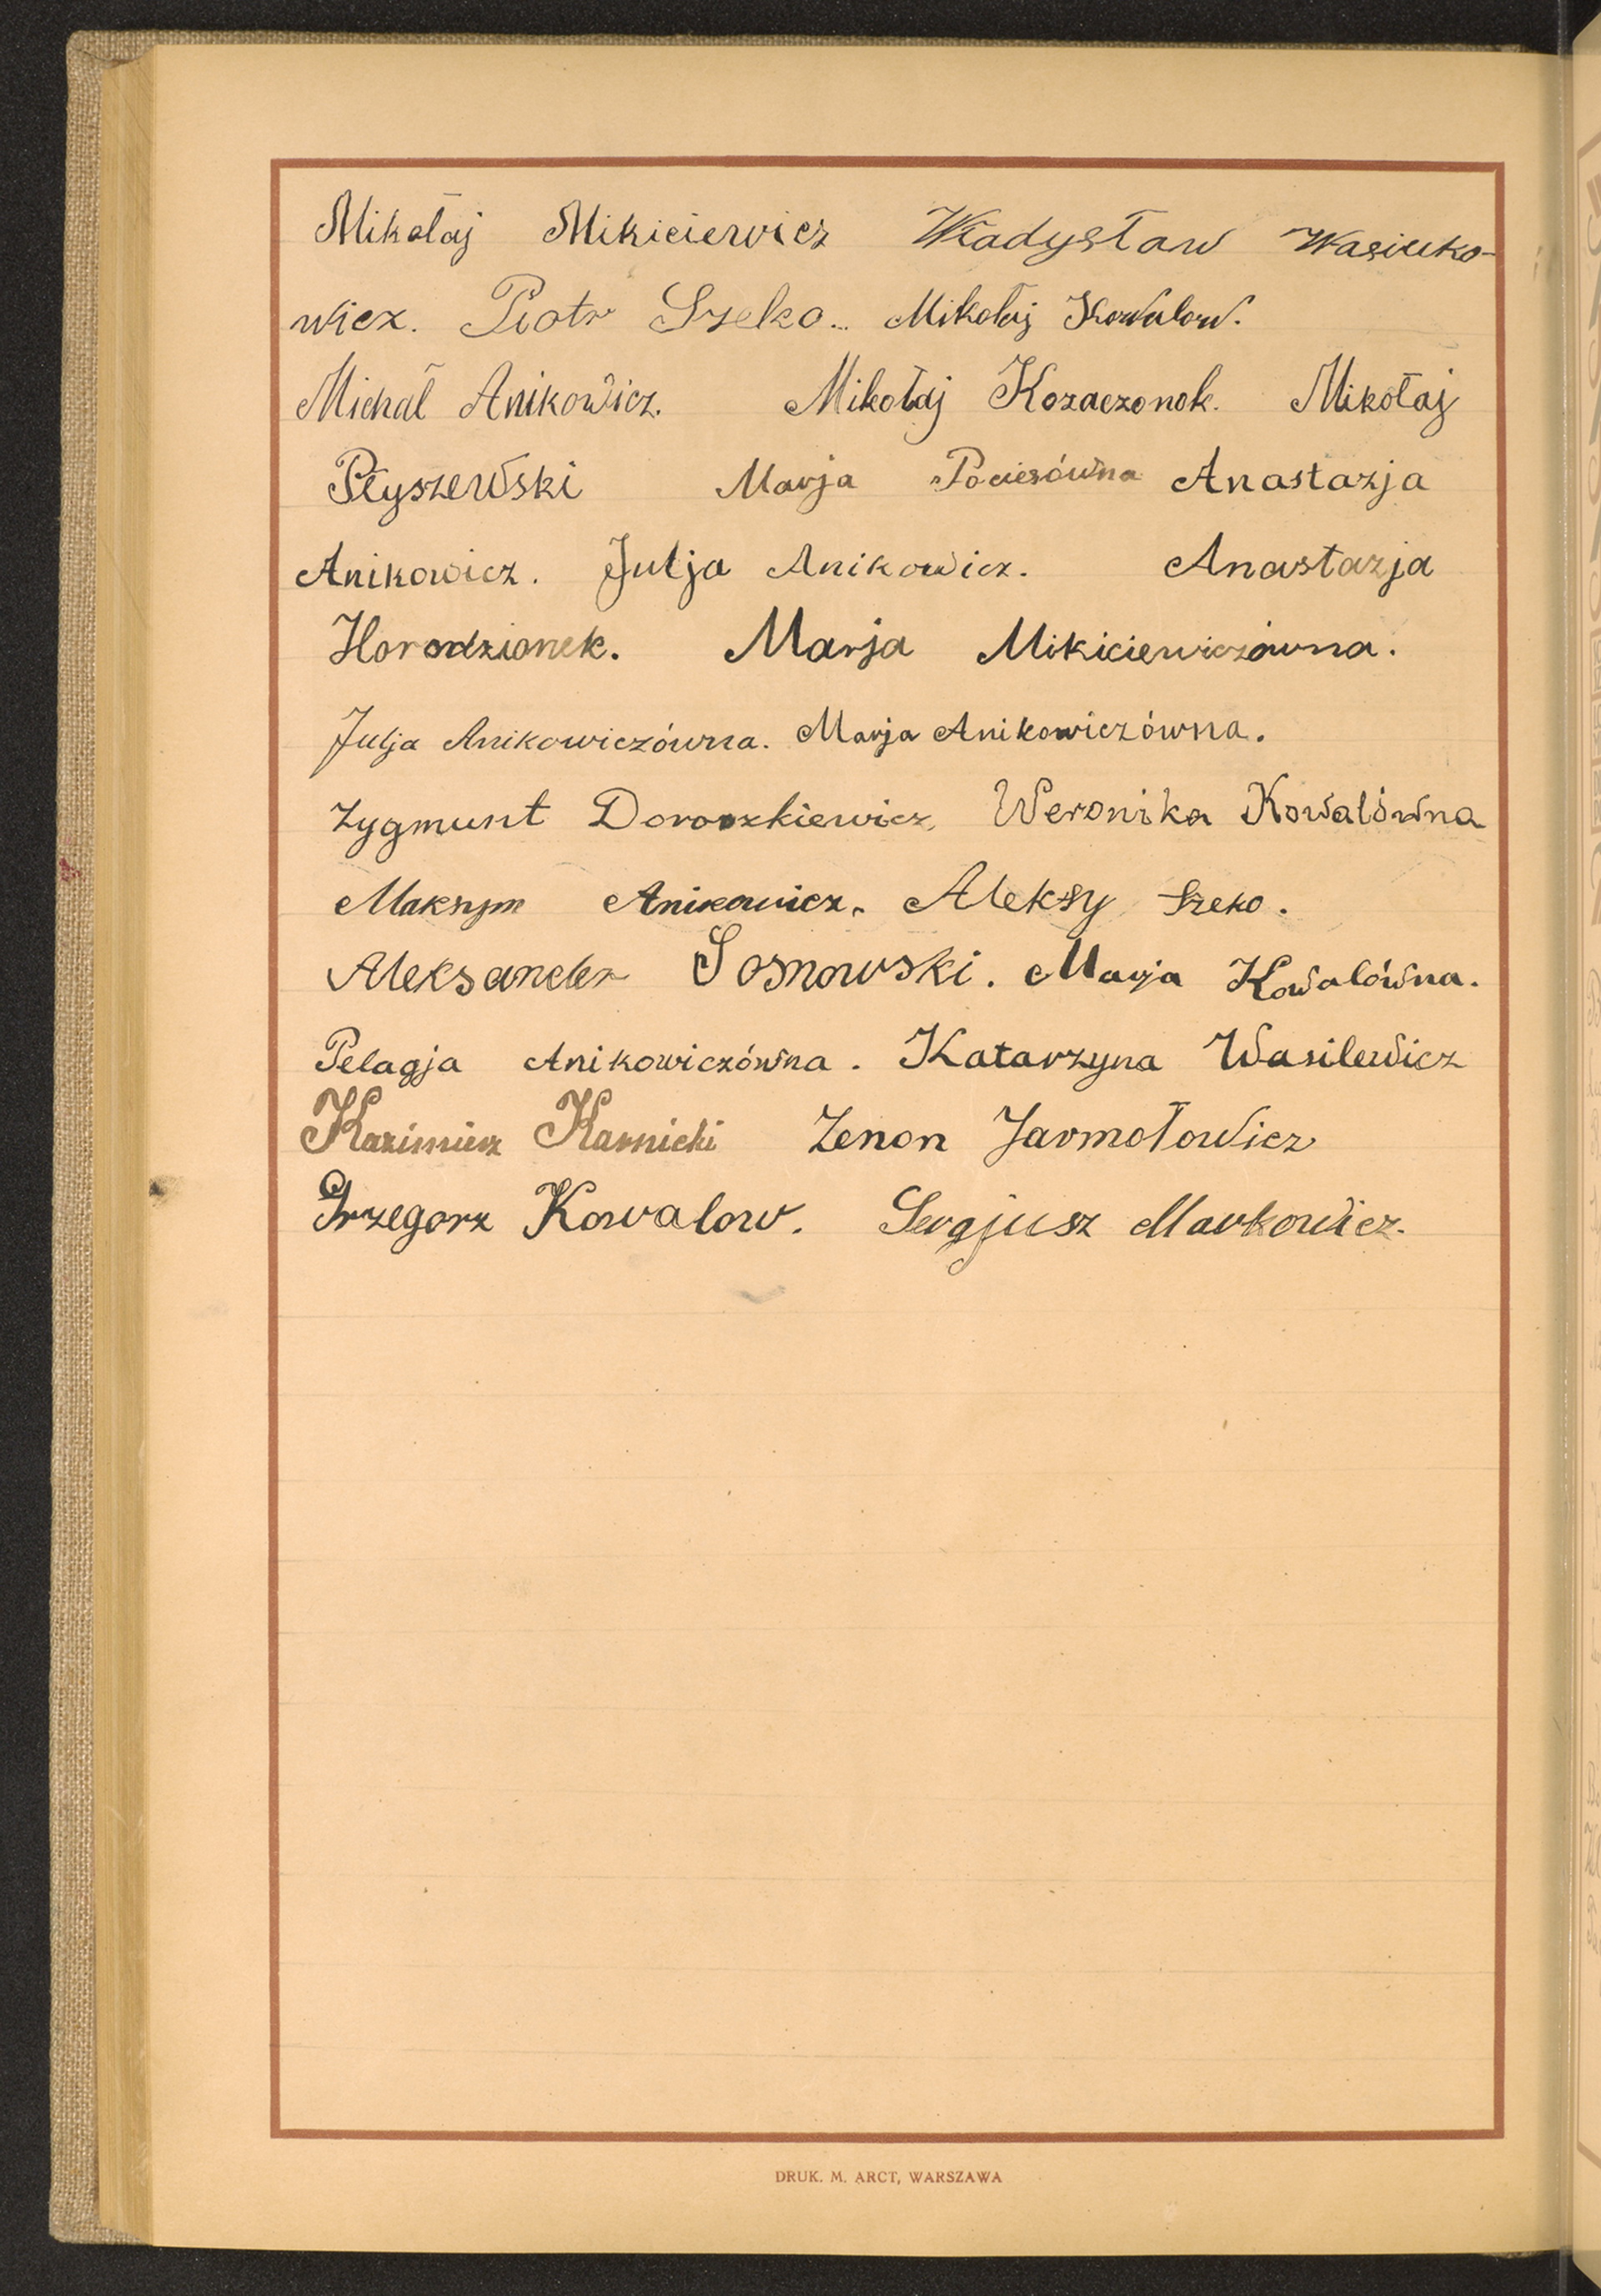 Mikołaj Mikiciewicz Władysław Wasiuko-
wicz. Piotr Szeko.. Mikołaj Kowalow.
Michał Anikowicz. Mikołaj Kozaczonok. Mikołaj
Płyszewski Marja Pociesówna Anastazja
Anikowicz. Julja Anikowicz. Anastazja
Horodzionek. Marja Mikiciewiczówna.
Julja Anikowiczówna. Marja Anikowiczówna.
Zygmunt Doroszkiewicz, Weronika Kowalówna
Maksym Anikowicz. Aleksy Szeko.
Aleksander Sosnowski. Marja Kowalówna.
Pelagja Anikowiczówna. Katarzyna Wasilewicz
Kazimierz Karnicki Zenon Jarmołowicz
Grzegorz Kowalow. Sergjusz Markowicz.
DRUK. M. ARCT, WARSZAWA